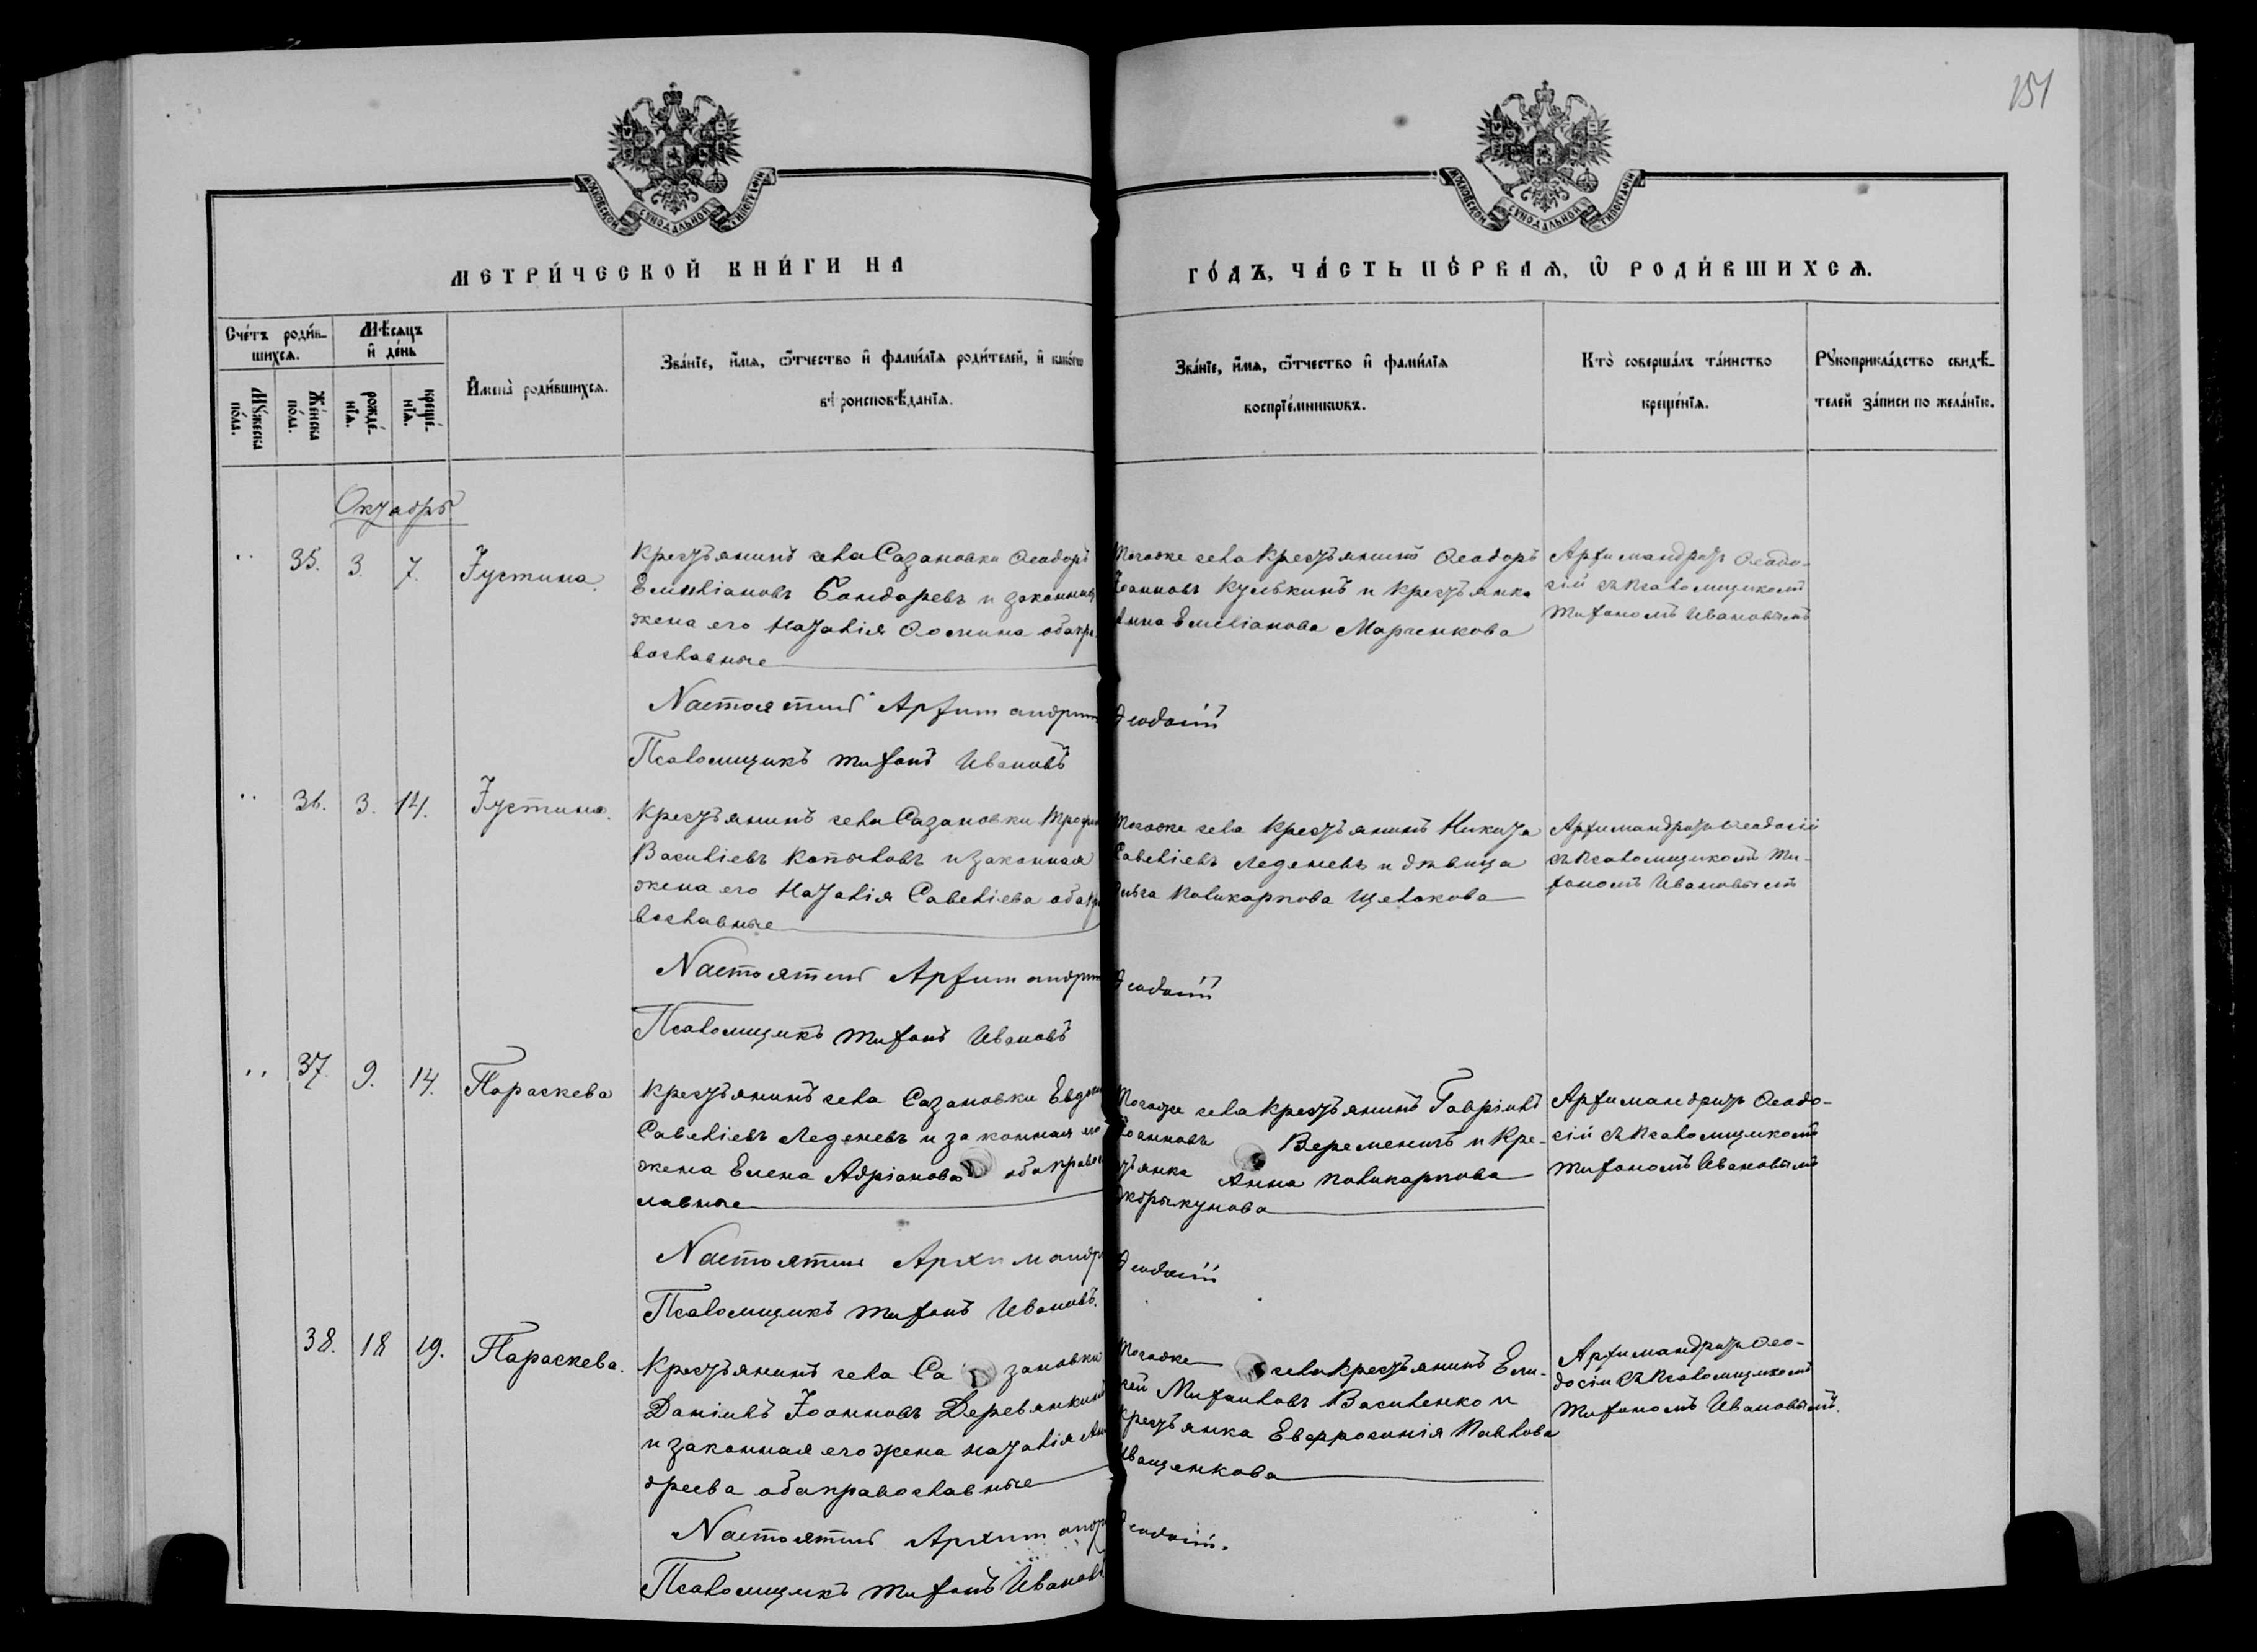 151
МОСКОВСКОЙ СѴНОДАЛЬНОЙ ТИПОГРАФІИ
МОСКОВСКОЙ СѴНОДАЛЬНОЙ ТИПОГРАФІИ
МЕТРИ́ЧЕСКОЙ КНИ́ГИ НА
ГО́ДЪ, ЧА́СТЬ ПЕ́РВАѦ, Ѡ҆ РОДИ́ВШИХСѦ.
Сче́тъ роди́в-
шихсѧ.
Мѣ́сѧцъ
и҆ де́нь
Мꙋ́жеска
по́ла.
Же́нска
по́ла.
рожде́-
нїѧ.
креще́-
нїѧ.
И҆мена̀ роди́вшихсѧ.
Зва́нїе, и҆́мѧ, ѻ҆́тчество и҆ фами́лїѧ роди́телей, и҆ како́гѡ
вѣроисповѣ́данїѧ.
Зва́нїе, и҆́мѧ, ѻ҆́тчество и҆ фами́лїѧ
воспрїе́мникѡвъ.
Кто̀ соверша́лъ та́инство
креще́нїѧ.
Рꙋкоприкла́дство свидѣ́-
телей за́писи по жела́нїю.
Октябрь
35. 3. 7. Іустина.
Крестьянинъ села Сазановки Ѳеодоръ
Емиліановъ Бондаревъ и законная
жена его Наталія Ѳомина оба пра
вославные
Тогоже села крестьянинъ Ѳеодоръ
Іоанновъ Кулькинъ и крестьянка
Анна Емеліанова Марченкова
Архимандритъ Ѳеодо-
сій съ псаломщикомъ
Тихономъ Ивановымъ
Настоятель Архимандрит Ѳеодосій
Псаломщикъ Тихонъ Ивановъ
36. 3. 14. Іустина.
Крестьянинъ села Сазановки
Василіевъ Копыловъ и законная
жена его Наталія Савеліева оба пра
вославные
Тогоже села крестьянинъ Никита
Савеліевъ Леденевъ и дѣвица
Поликарпова Щелокова
Архимандритъ Ѳеодосій
съ псаломщикомъ Ти-
хономъ Ивановымъ
Настоятель Архимандрит Ѳеодосій
Псаломщикъ Тихонъ Ивановъ
37. 9. 14. Параскева
Крестьянинъ села Сазановки
Савеліевъ Леденевъ и законная его
жена Елена Адріанова оба правос
лавные
Тогоже села крестьянинъ Гавріилъ
Іоанновъ Веременичъ и кре-
стьянка Анна Поликарпова
Архимандритъ Ѳеодо-
сій съ псаломщикомъ
Тихономъ Ивановымъ
Настоятель Архимандр Ѳеодосій
Псаломщикъ Тихонъ Ивановъ.
38. 18 19. Параскева.
Крестьянинъ села Са зановки
Даніилъ Іоанновъ Деревянкинъ
и законная его жена Наталія Ан
дреева оба православные
Тогоже села крестьянинъ Ели-
сей Михаиловъ Василенко и
крестьянка Евфросинія Павлова
Иващенкова
Архимандритъ Ѳео-
досій съ псаломщикомъ
Тихономъ Ивановымъ.
Настоятель Архимандр Ѳеодосій.
Псаломщикъ Тихонъ Ивановъ